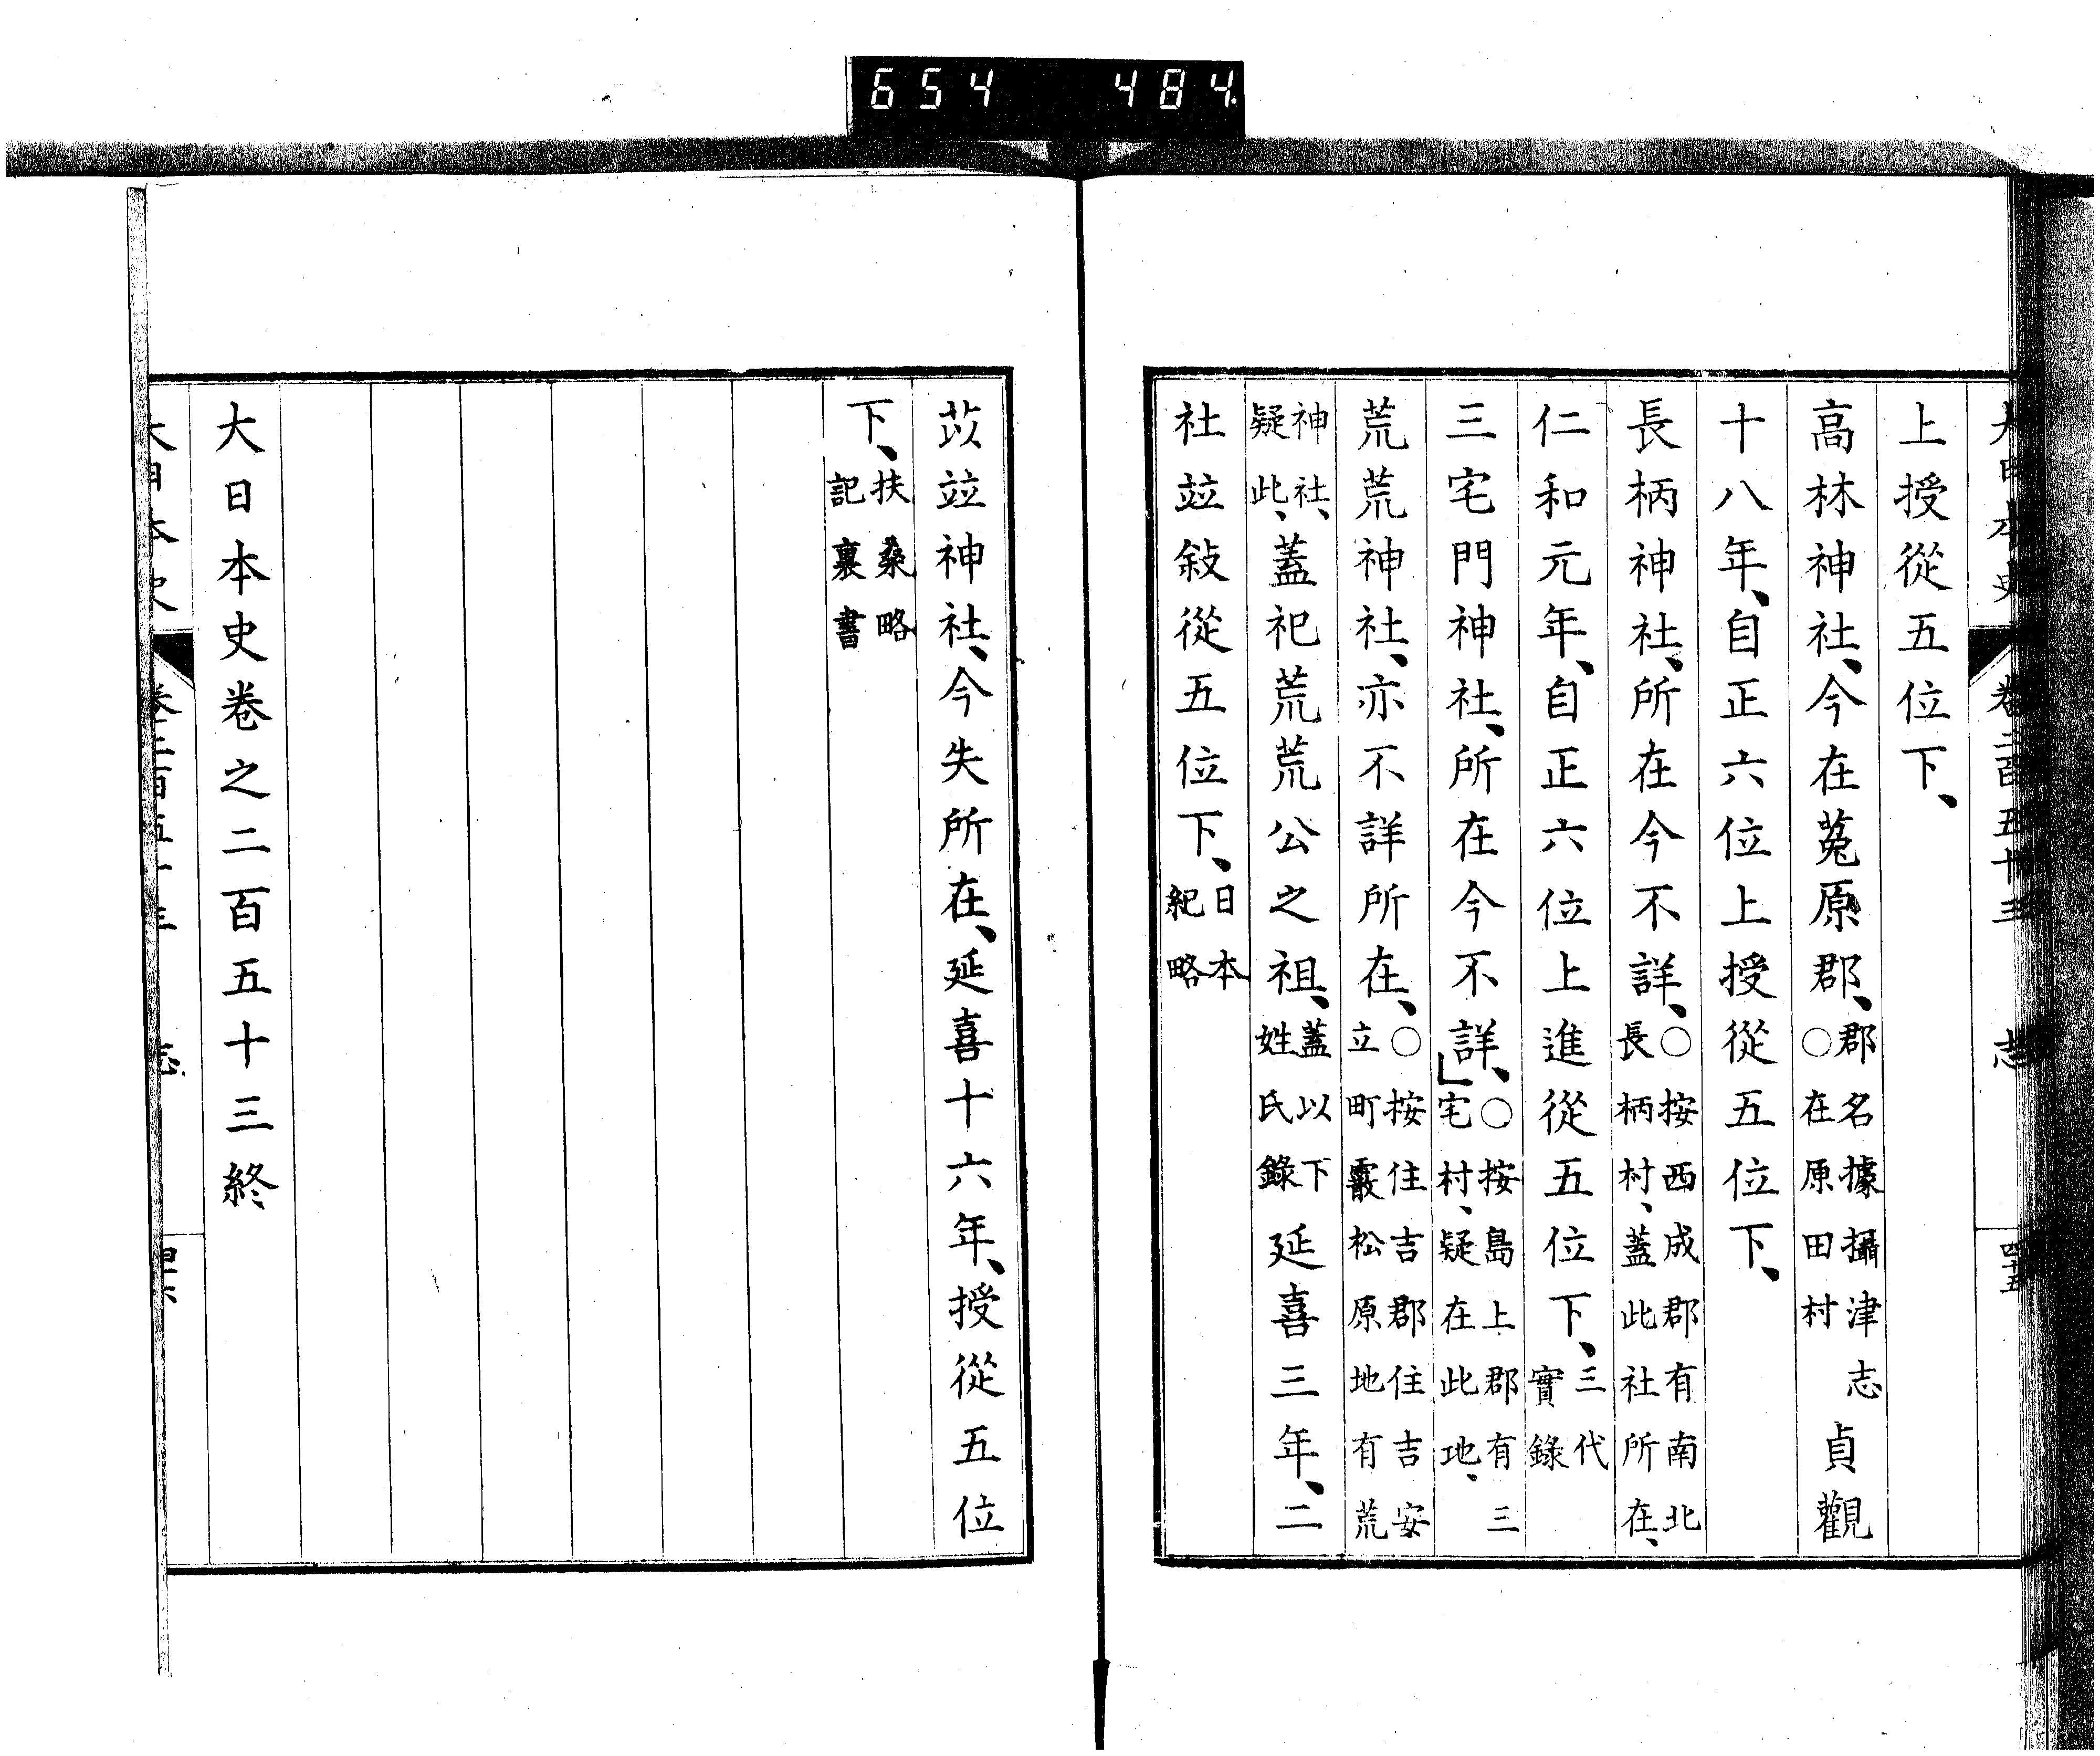 654 484
大日本史 卷二百五十三 志 四十五
上授從五位下、
高林神社、今在菟原郡、郡名據攝津志○在原田村貞觀
十八年、自正六位上授從五位下、
長柄神社、所在今不詳、○按西成郡有南北長柄村、蓋此社所在、
仁和元年、自正六位上進從五位下、三代實錄
三宅門神社、所在今不詳、○按島上郡有三宅村、疑在此地、
荒荒神社、亦不詳所在、○按住吉郡住吉安立町霰松原地有荒
神社、疑此、蓋祀荒荒公之祖、蓋以下姓氏錄延喜三年、二
社竝敍從五位下、日本紀略
苡竝神社、今失所在、延喜十六年、授從五位
下、扶桑略記裏書
大日本史卷之二百五十三終
大日本史 卷二百五十三 志